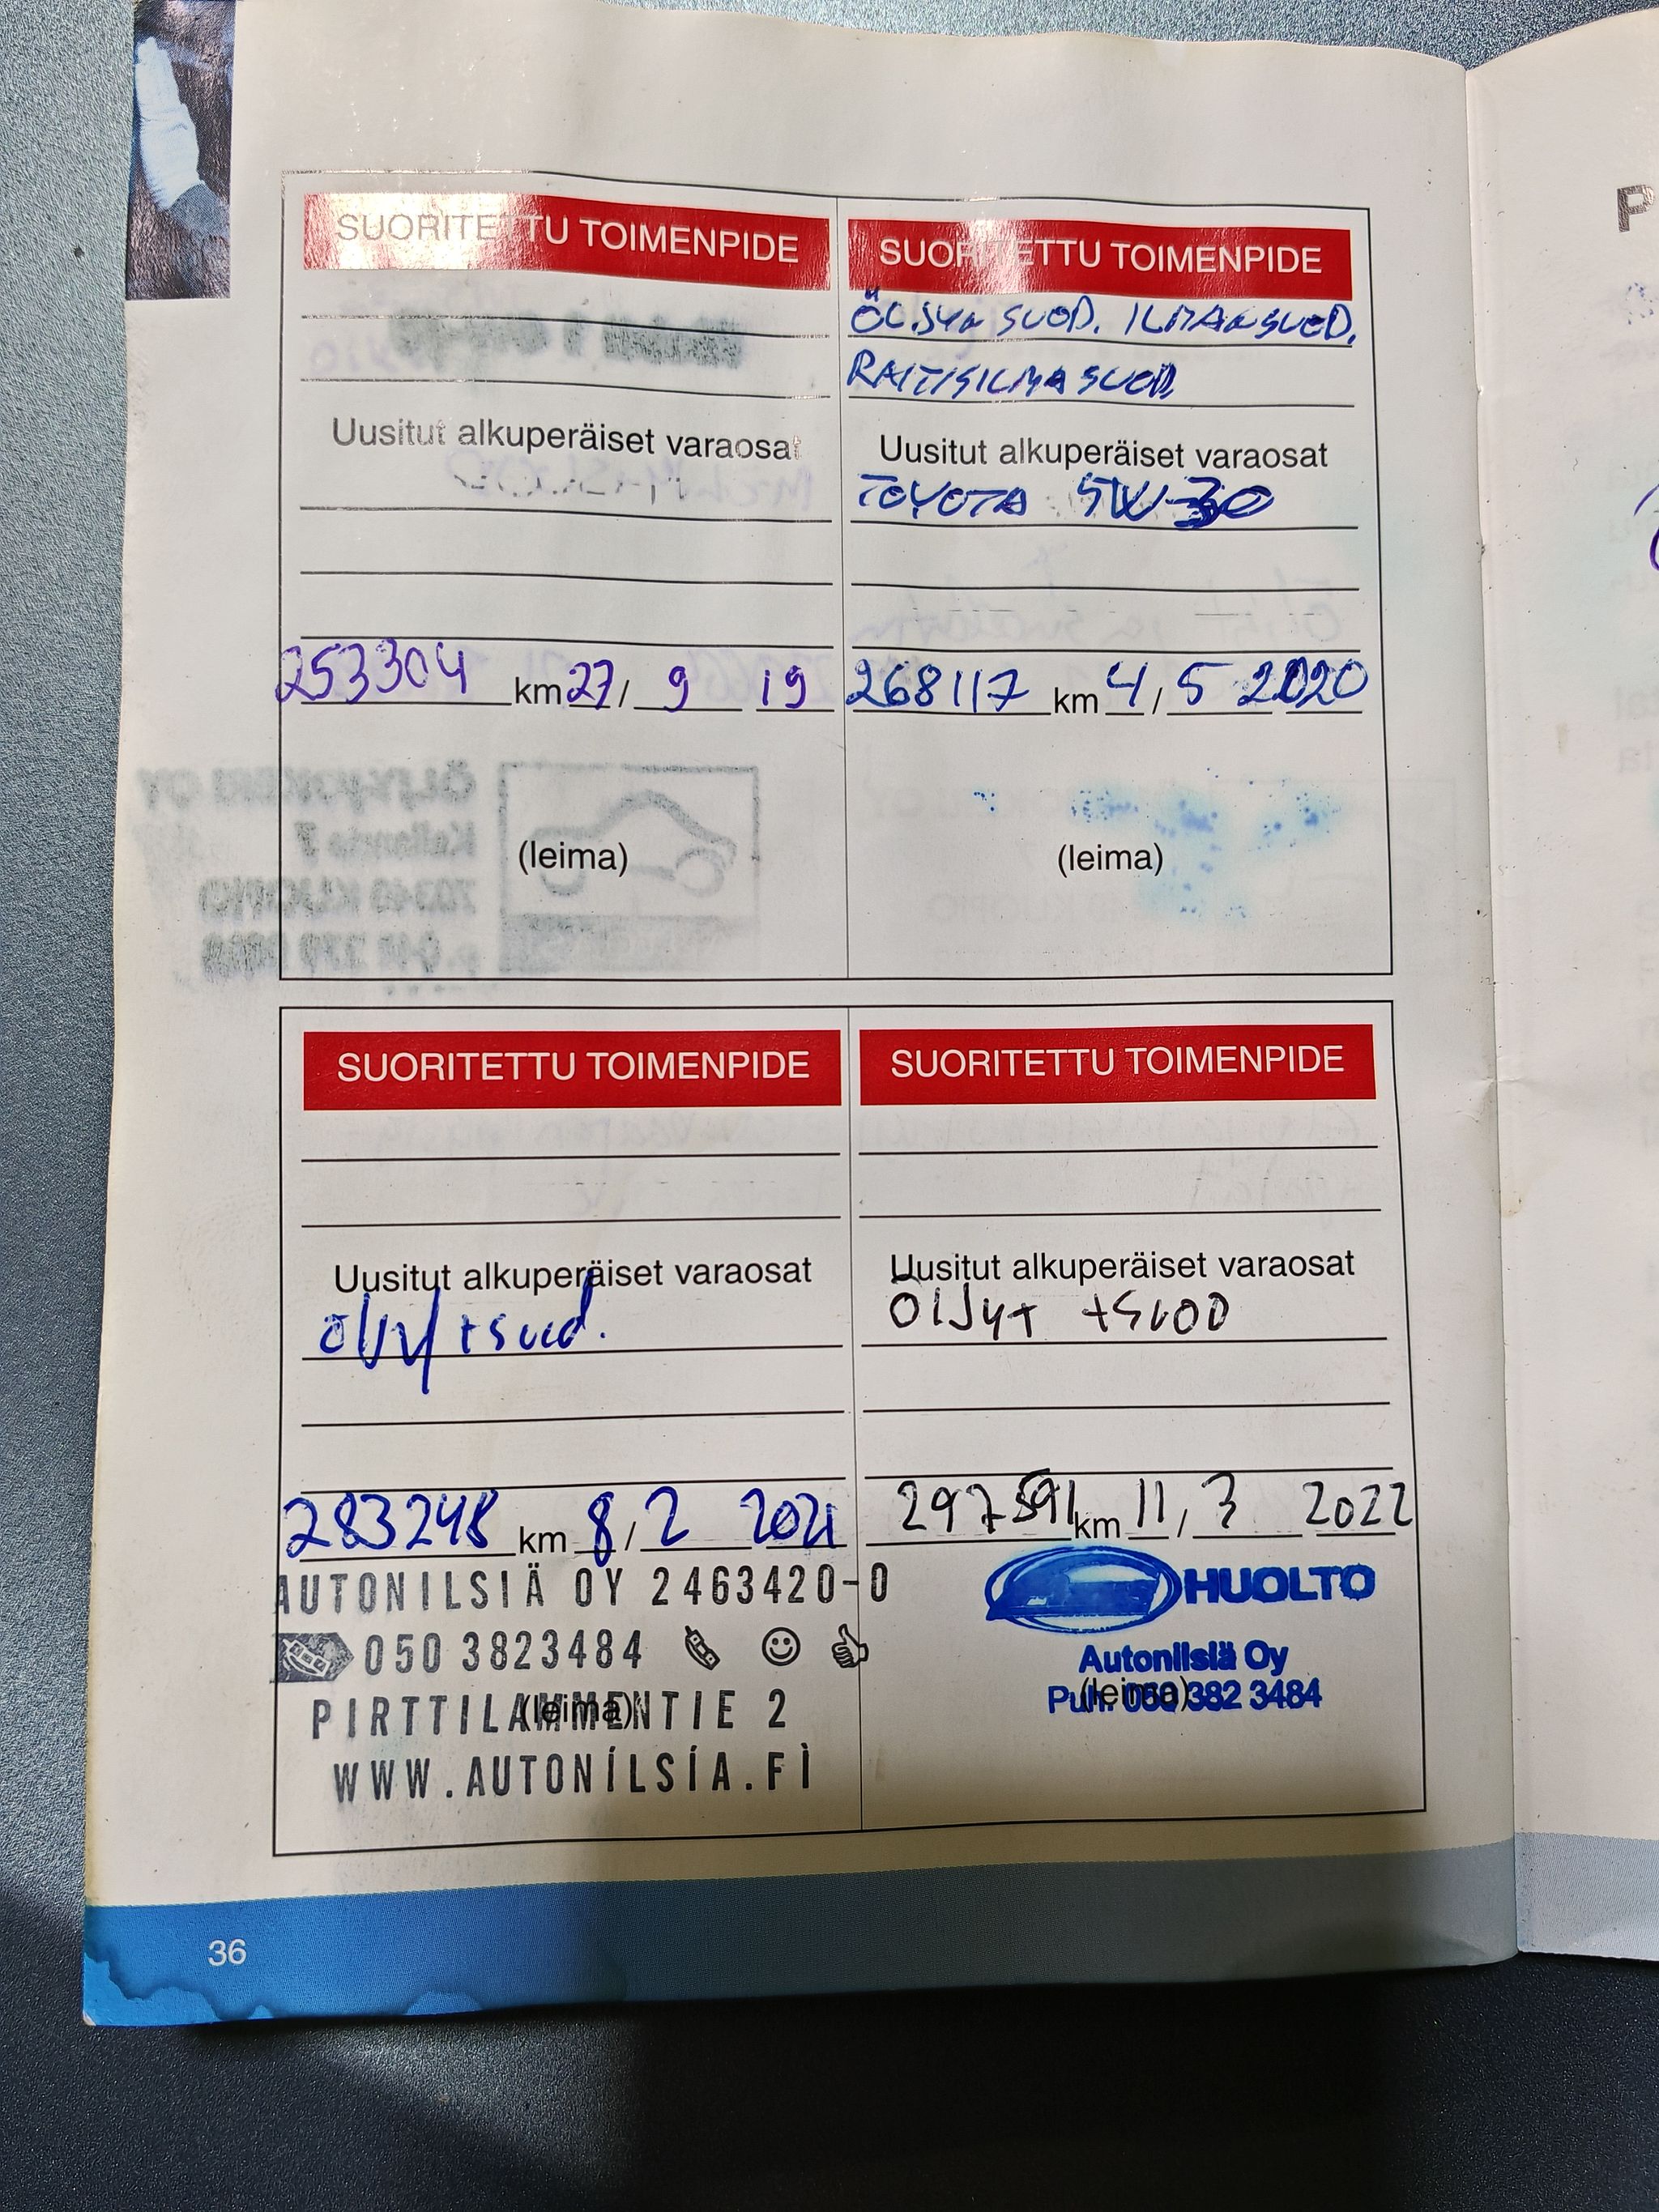 SUORITETTU TOIMENPIDE
Uusitut alkuperäiset varaosat
253304 km 27 / 9 19
(leima)
SUORITETTU TOIMENPIDE
ÖLJYN SUOD. ILMANSUOD.
RAITISILMASUOD.
Uusitut alkuperäiset varaosat
TOYOTA 5W-30
268117 km 4 / 5 2020
(leima)
SUORITETTU TOIMENPIDE
Uusitut alkuperäiset varaosat
öljyt +suod.
283248 km 8 / 2 2021
AUTONILSIÄ OY 2463420-0
050 3823484
(leima)
PIRTTILAMMENTIE 2
WWW.AUTONÍLSÍA.FÌ
SUORITETTU TOIMENPIDE
Uusitut alkuperäiset varaosat
ÖlJyt +SUOD
297591 km 11 / 3 2022
HUOLTO
Autonilsiä Oy
Puh. 050 382 3484
(leima)
36
P